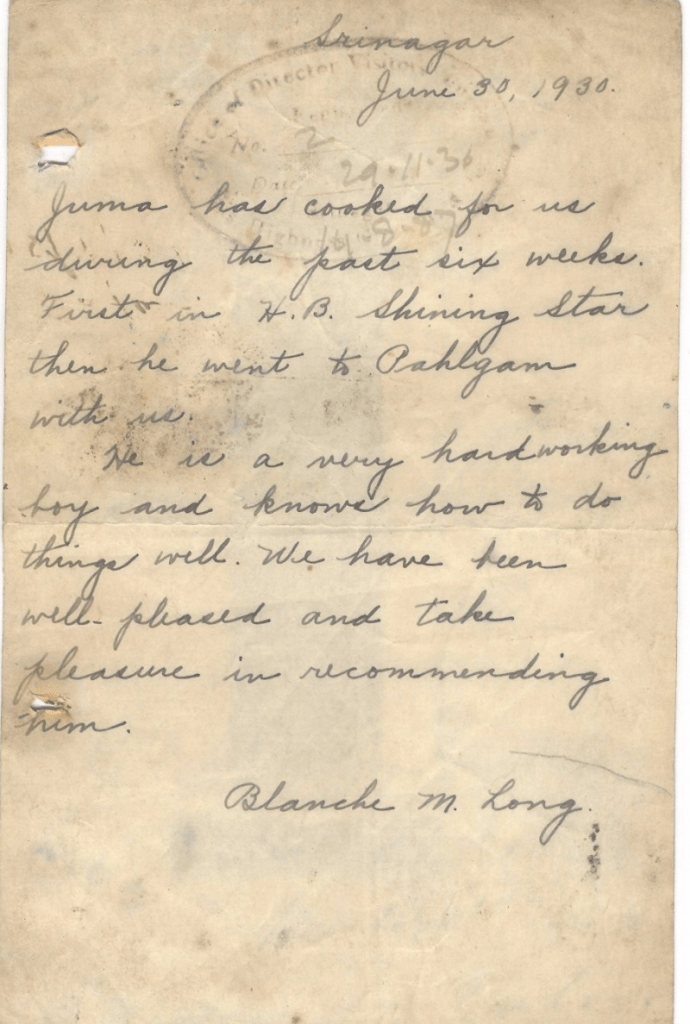 Srinagar
June 30, 1930.
Office of Director Visitors
No. 2
Date 29.11.36
Juma has cooked for us
during the past six weeks.
First in H.B. Shining Star
then he went to Pahlgam
with us.
He is a very hardworking
boy and knows how to do
things well. We have been
well-pleased and take
pleasure in recommending
him.
Blanche M. Long.